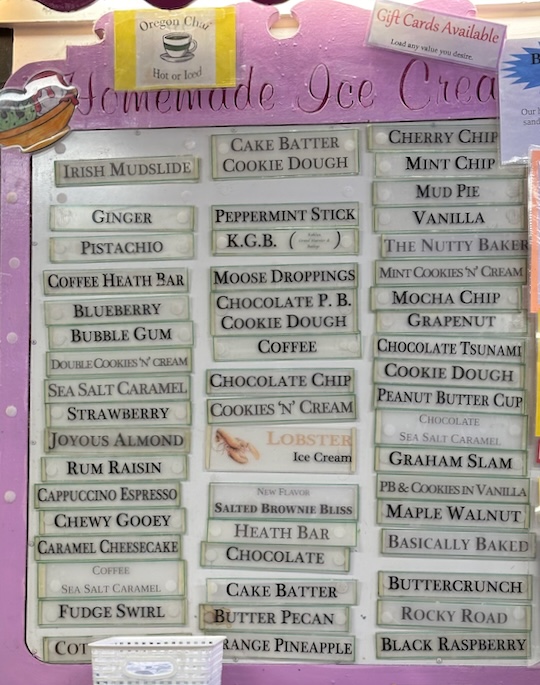 Oregon Chai
Hot or Iced
Gift Cards Available
Load any value you desire.
Homemade Ice Crea
B
Our
sand
IRISH MUDSLIDE
GINGER
PISTACHIO
COFFEE HEATH BAR
BLUEBERRY
BUBBLE GUM
DOUBLE COOKIES 'N' CREAM
SEA SALT CARAMEL
STRAWBERRY
JOYOUS ALMOND
RUM RAISIN
CAPPUCCINO ESPRESSO
CHEWY GOOEY
CARAMEL CHEESECAKE
COFFEE
SEA SALT CARAMEL
FUDGE SWIRL
COT
CAKE BATTER
COOKIE DOUGH
PEPPERMINT STICK
K.G.B. ( )
MOOSE DROPPINGS
CHOCOLATE P. B.
COOKIE DOUGH
COFFEE
CHOCOLATE CHIP
COOKIES 'N' CREAM
LOBSTER
ICE CREAM
NEW FLAVOR
SALTED BROWNIE BLISS
HEATH BAR
CHOCOLATE
CAKE BATTER
BUTTER PECAN
RANGE PINEAPPLE
CHERRY CHIP
MINT CHIP
MUD PIE
VANILLA
THE NUTTY BAKER
MINT COOKIES 'N' CREAM
MOCHA CHIP
GRAPENUT
CHOCOLATE TSUNAMI
COOKIE DOUGH
PEANUT BUTTER CUP
CHOCOLATE
SEA SALT CARAMEL
GRAHAM SLAM
PB & COOKIES IN VANILLA
MAPLE WALNUT
BASICALLY BAKED
BUTTERCRUNCH
ROCKY ROAD
BLACK RASPBERRY